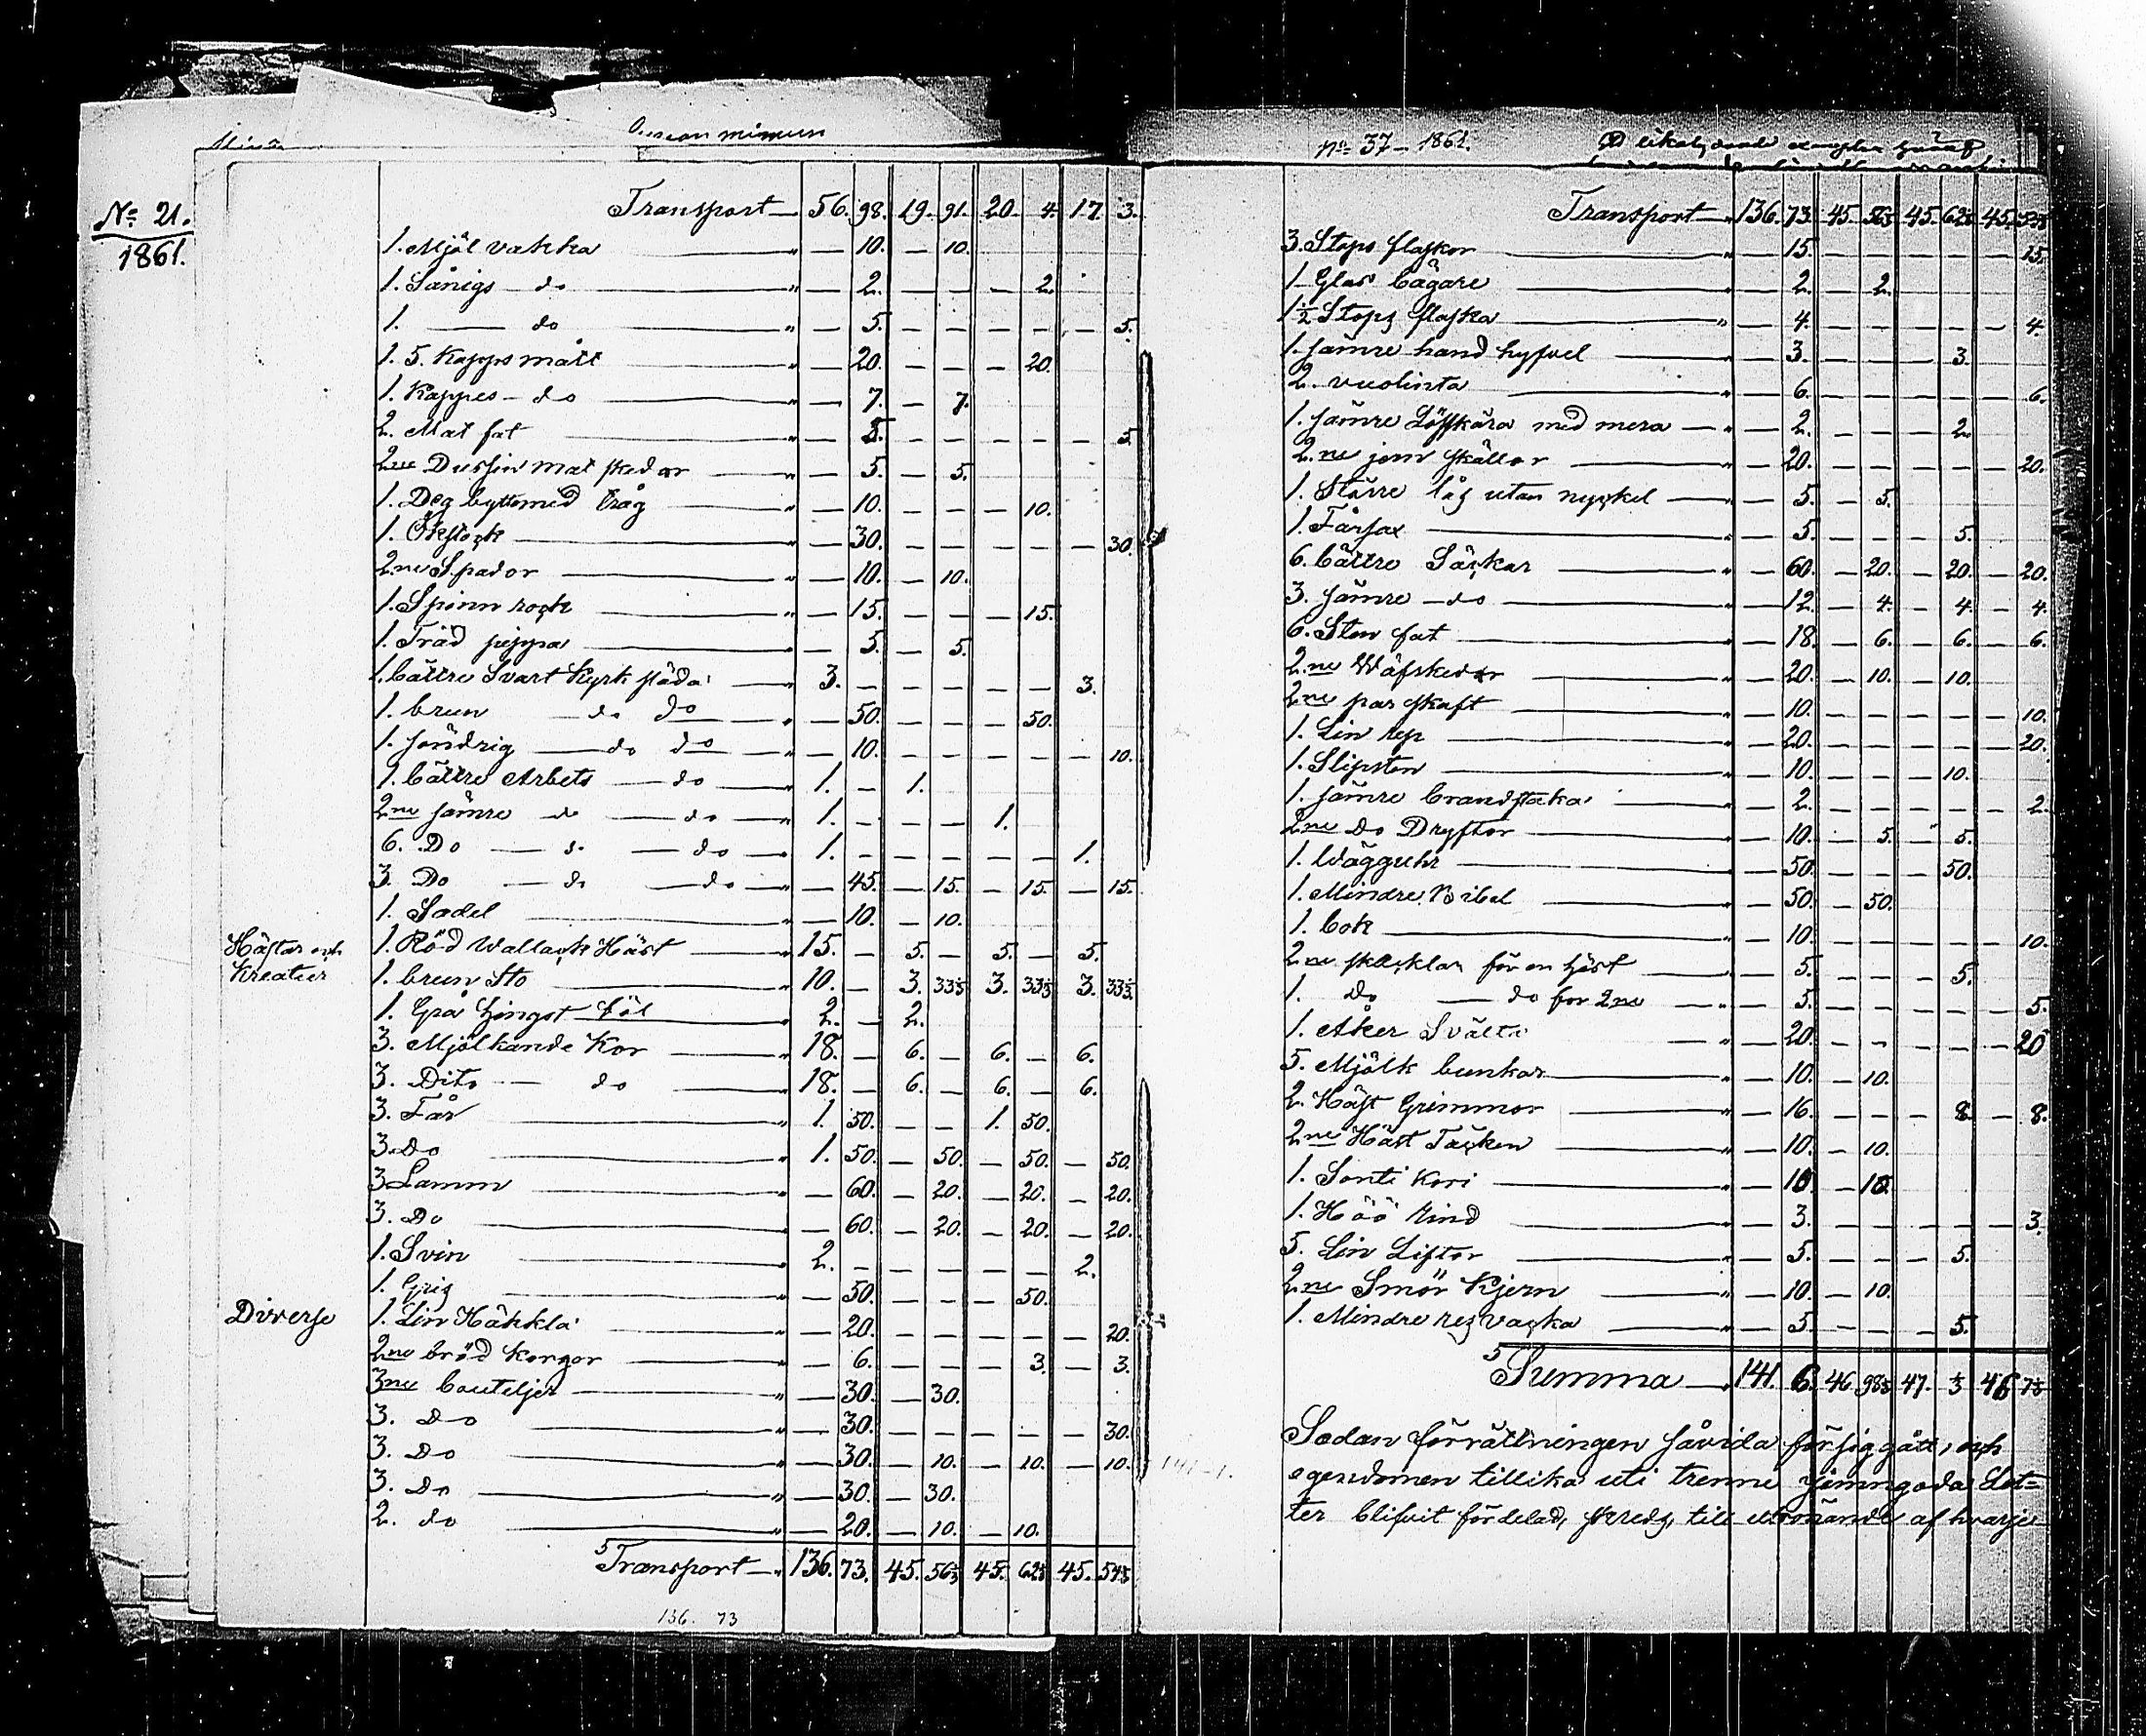 No 37 – 1861.
No 21.
1861.
Transport 56. 98. 19. 91. 20. 4. 17. 3.
1. Mjöl vakka " — 10. — 10.
1. Sånigs do " — 2. — — — 2.
1. — do " — 5. — — — — — 5.
1. 5. Kapps mått " — 20. — — — 20.
1. Kappes do " — 7. — 7.
2. Mat fat " — 5. — — — — — 5.
2ne Dussin mat skedar " — 5. — 5.
1. Deg bytta med tråg " — 10. — — — 10.
1. Ökstock " — 30. — — — — — 30.
2ne Spador " — 10. — 10.
1. Spinn rock " — 15. — — — 15.
1. Träd pippa " — 5. — 5.
1. bättre Svart Kyrk släda " 3. — — — — — 3.
1. brun do do " — 50. — — — 50.
1. sandrig do do " — 10. — — — — — 10.
1. bättre Arbets do " 1. — 1.
2ne sämre do do " 1. — — — 1.
6. Do do do " 1. — — — — — 1.
3. Do do do " — 45. — 15. — 15. — 15.
1. Sadel " — 10. — 10.
Hästar och 1. Röd Wallack Häst " 15. — 5. — 5. — 5.
Kreatur 1. brun Sto " 10. — 3. 33⅓ 3. 33⅓ 3. 33⅓.
1. Grå hingst föl " 2. — 2.
3. Mjölkande Kor " 18. — 6. — 6. — 6.
3. Dito do " 18. — 6. — 6. — 6.
3. Får " 1. 50. — — 1. 50.
3. Do " 1. 50. — 50. — 50. — 50.
3 Lamm " — 60. — 20. — 20. — 20.
3. Do " — 60. — 20. — 20. — 20.
1. Svin " 2. — — — — — 2.
1. Gris " — 50. — — — 50.
Diverse 1. Lin Häkkla " — 20. — — — — — 20.
2ne bröd korgor " — 6. — — — 3. — 3.
3ne bouteljer " — 30. — 30.
3. Do " — 30. — — — — — 30.
3. Do " — 30. — 10. — 10. — 10.
3. Do " — 30. — 30.
2. do " — 20. — 10. — 10.
Transport " 136. 73. 45. 56⅓ 45. 62⅓ 45. 54⅓
136. 73
Transport " 136. 73. 45. 56⅓ 45. 62⅓ 45. 54⅓
3. Stops flaskor " — 15. — — — — — 15.
1 Glas bägare " — 2. — 2.
1 ½ Stops flaska " — 4. — — — — — 4.
1. sämre hand hyfvel " — 3. — — — 3.
2. vuolinta " — 6. — — — — — 6.
1. sämre Löfskära med mera " — 2. — — — 2.
2.ne jern skällor " — 20. — — — — — 20.
1. Större lås utan nyckel " — 5. — 5.
1. Fårsax " — 5. — — — 5.
6. bättre Säckar " — 60. — 20. — 20. — 20.
3. sämre do " — 12. — 4. — 4. — 4.
6. Sten fat " — 18. — 6. — 6. — 6.
2.ne Wäfskedar " — 20. — 10. — 10.
2ne par skaft " — 10. — — — — — 10.
1. Lin rep " — 20. — — — — — 20.
1. Slipsten " — 10. — — — 10.
1. sämre brandstaka " — 2. — — — — — 2.
2ne do Dryftor " — 10. — 5. " 5.
1. Wägguhr " — 50. — — — 50.
1. Mindre Bibel " — 50. — 50.
1. bok " — 10. — — — — — 10.
2ne skacklar för en häst " — 5. — — — 5.
1. do do for 2ne " — 5. — — — — — 5.
1. Åker Svält " — 20. — — — — — 20
5. Mjölk bunkar " — 10. — 10.
2. Häst Grimmor " — 16. — — — 8. — 8.
2ne Häst Täcken " — 10. — 10.
1. Sonti kori " — 10. — 10.
1. Höö rind " — 3. — — — — — 3.
5. Lin Liftor " — 5. — — — 5.
2ne Smör Kjern " — 10. — 10.
1. Mindre res vacka " — 5. — — — 5.
Summa " 141. 6. 46 98⅓ 47. ⅓ 46 7⅓
Sedan förrättningen såvida försiggått, och
egendomen tillika uti trenne jemngoda Lot-
ter blifvit fördelad, skreds, till utrönande af hvarje